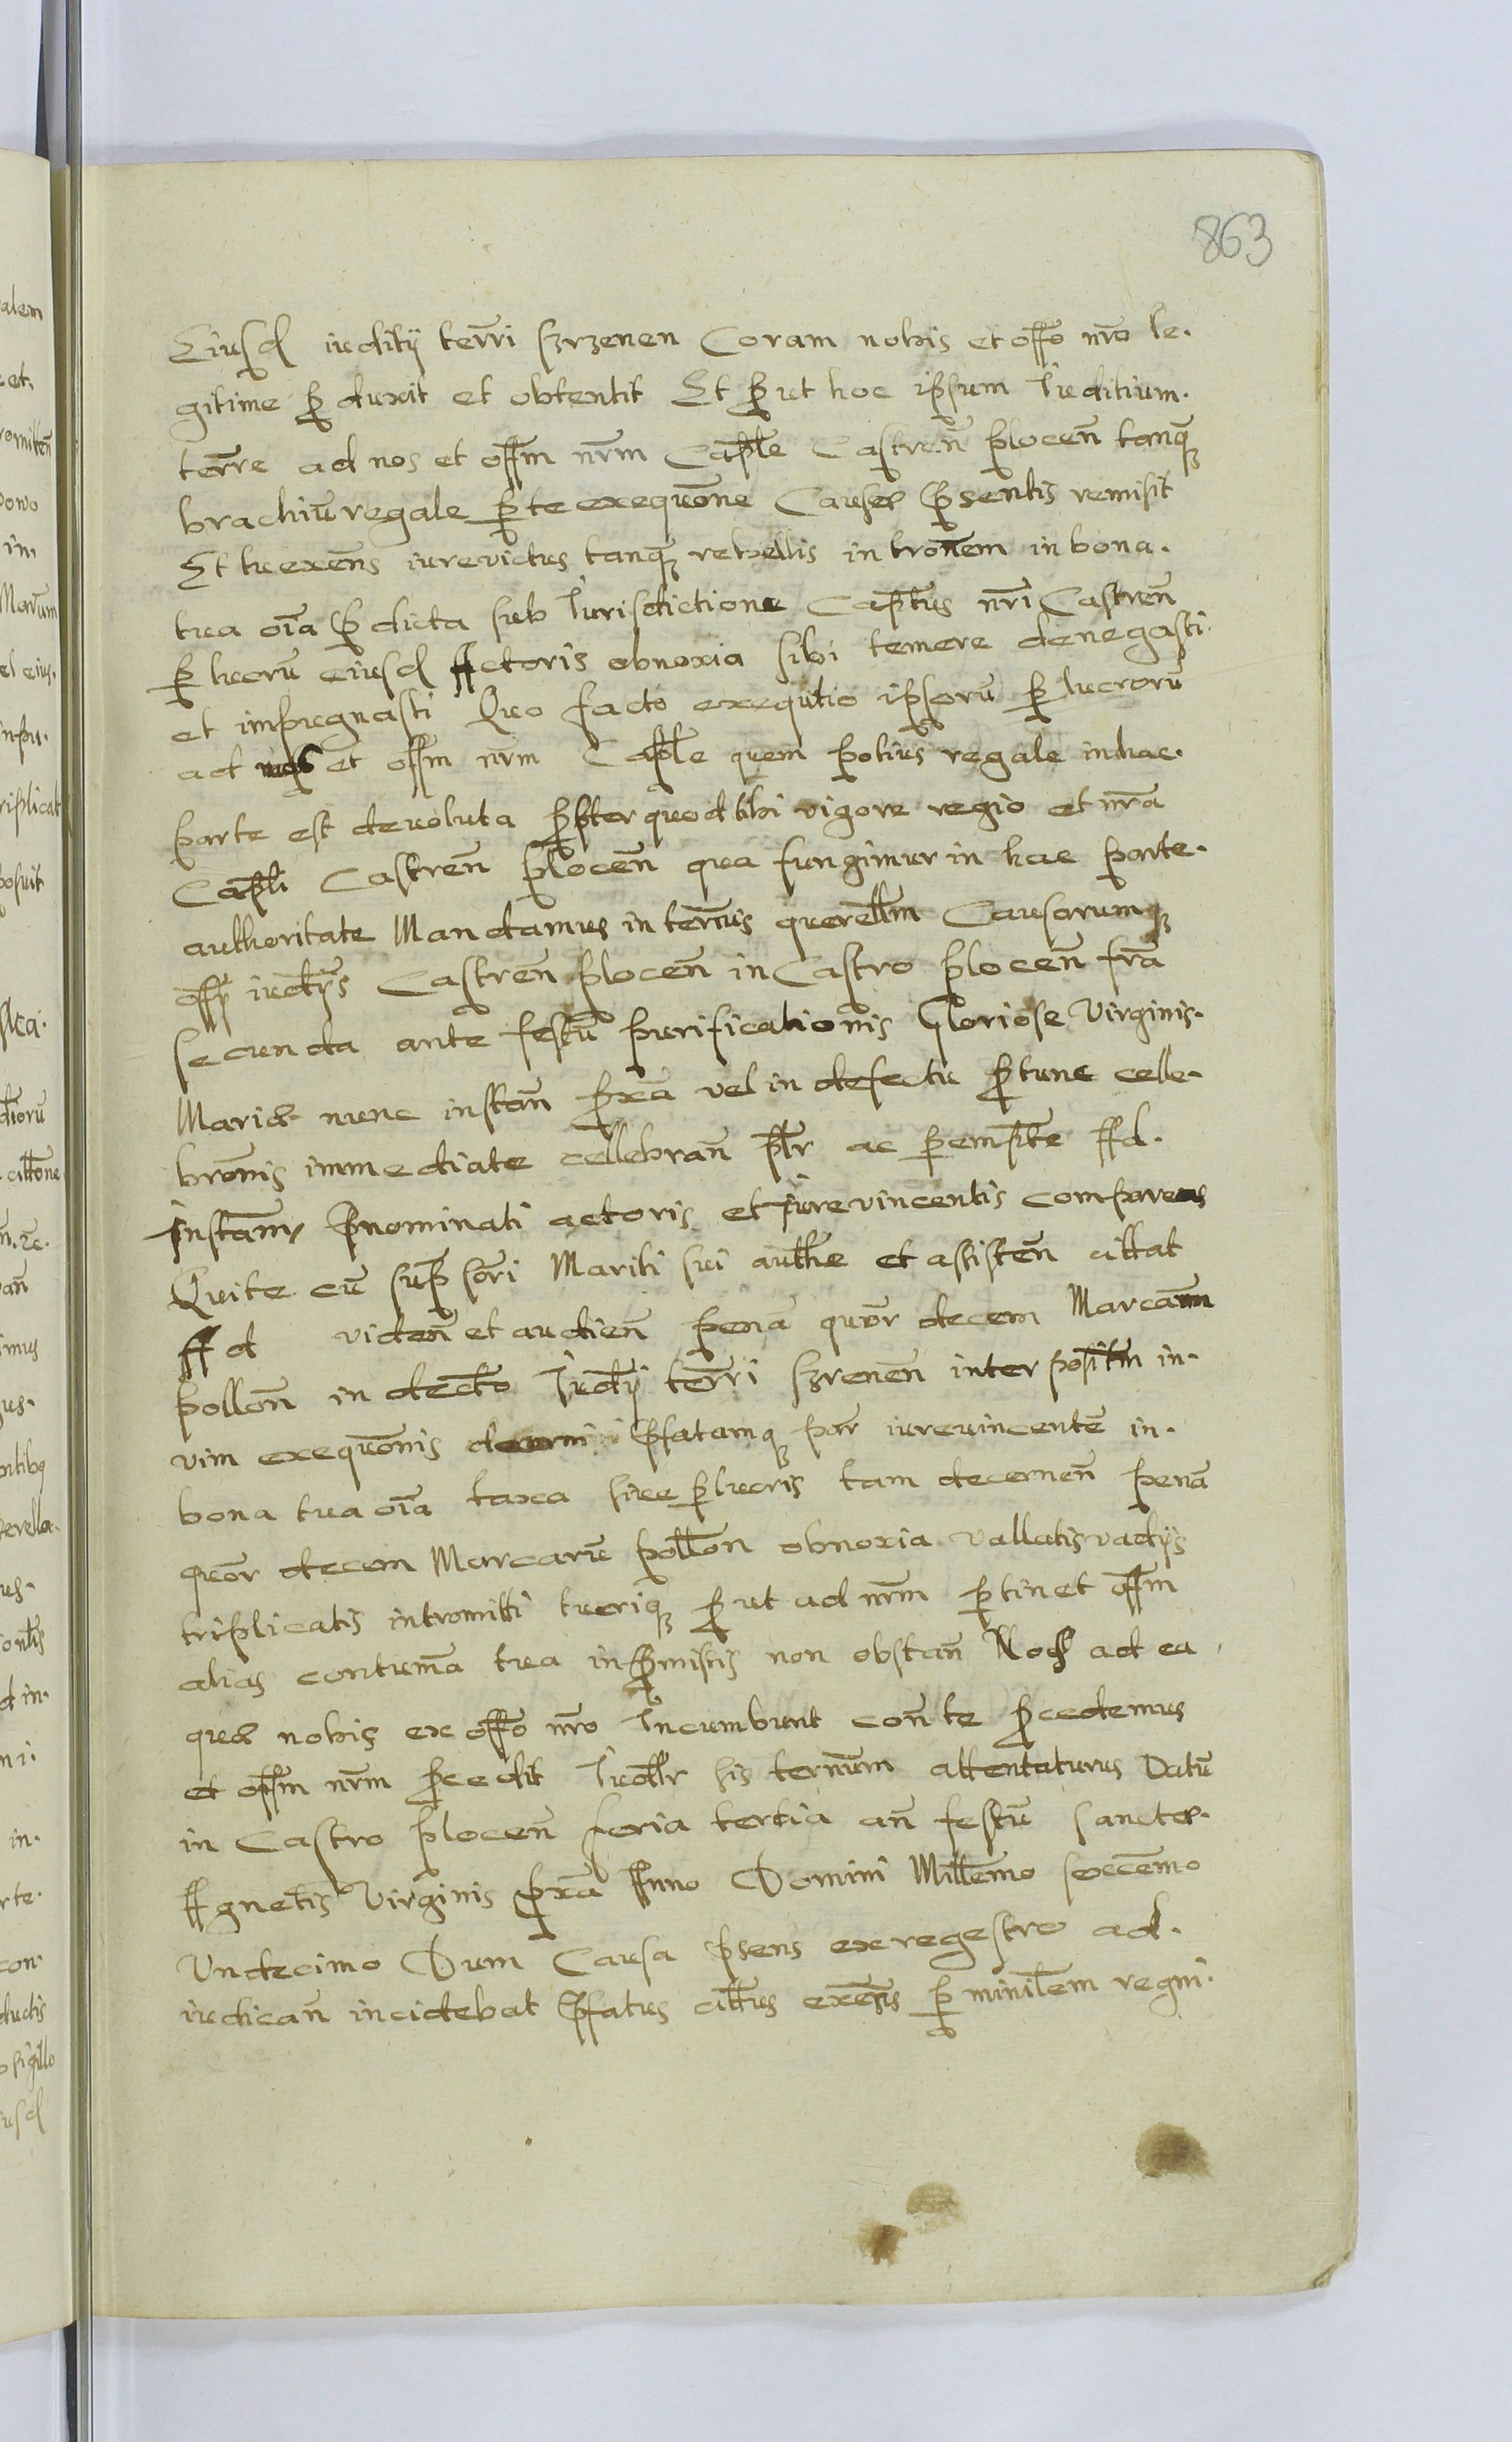 863
Eiusd iuditÿ terri szrzenen Coram nobis et offo nro le.
gitime ꝑduxit et obtentit Et ꝓut hoc ipsum Iuditium.
terre ad nos et offm nrm Caplle Castren plocen tanqȝ
brachiu regale ꝑte exequone Causæ p̃sentis remisit
Et tu exens iurevictus tanqȝ rebellis intronem in bona.
tua oia p̃dicta sub Iurisdictione Captus nri Castren
ꝑ lucru eiusd Actoris obnoxia sibi temere denegasti
et impugnasti Quo facto exequtio ipsoru ꝑ lucroru
ad nos et offm nrm Caplle quem potius regale in hac.
parte est devoluta ꝓpter quod tibi vigore regio et nra
Capli Castren plocen qua fungimur in hac parte.
authoritate Mandamus in ternis querellm Causarumqȝ
offÿ iudÿs Castren plocen in Castro plocen fra
secunda ante festu purificationis Gloriose Virginis.
Mariæ nunc instan ꝓxa vel in defectu ꝓ tunc celle.
bronis immediate cellebran pltr ac ꝑempte Ad.
Instam p̃nominati actoris et iurevincentis compareas
Qui te cu supsori Mariti sui authe et assisten cittat
Ad viden et audien pena quor decem Marcarum
pollon in decto Iudÿ terri szrenen interpositm in.
vim exequonis decerni p̃fatamqȝ par iurevincente in.
bona tua oia taxa sive ꝑlucris tam decernen pena
quor decem Marcaru pollon obnoxia vallatis vadÿs
triplicatis intromitti tueriqȝ ꝓut ad nrm ꝑtinet offm
alias contuma tua in p̃missis non obstan Nos ad ea
quæ nobis ex offo nro Incumbunt con te ꝓcedemus
et offm nrm ꝓcedit Iudllr his ternum attentaturus Datu
in Castro plocen feria tertia an festu sanctæ.
Agnetis Virginis ꝓxa Anno Domini Millemo sexcemo
Undecimo Dum Causa p̃sens ex regestro ad.
iudican incidebat p̃fatus cittus exens ꝑ minilem regni.